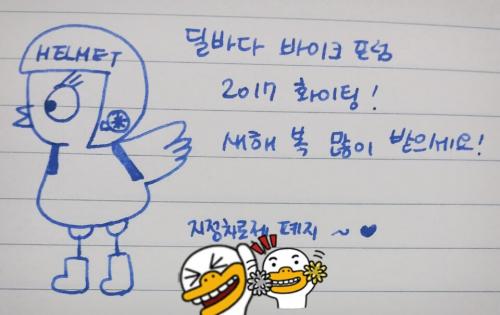 HELMET
달바다 바이크 포럼
2017 화이팅!
새해 복 많이 받으세요!
지정차로제 폐지 ~ ♥